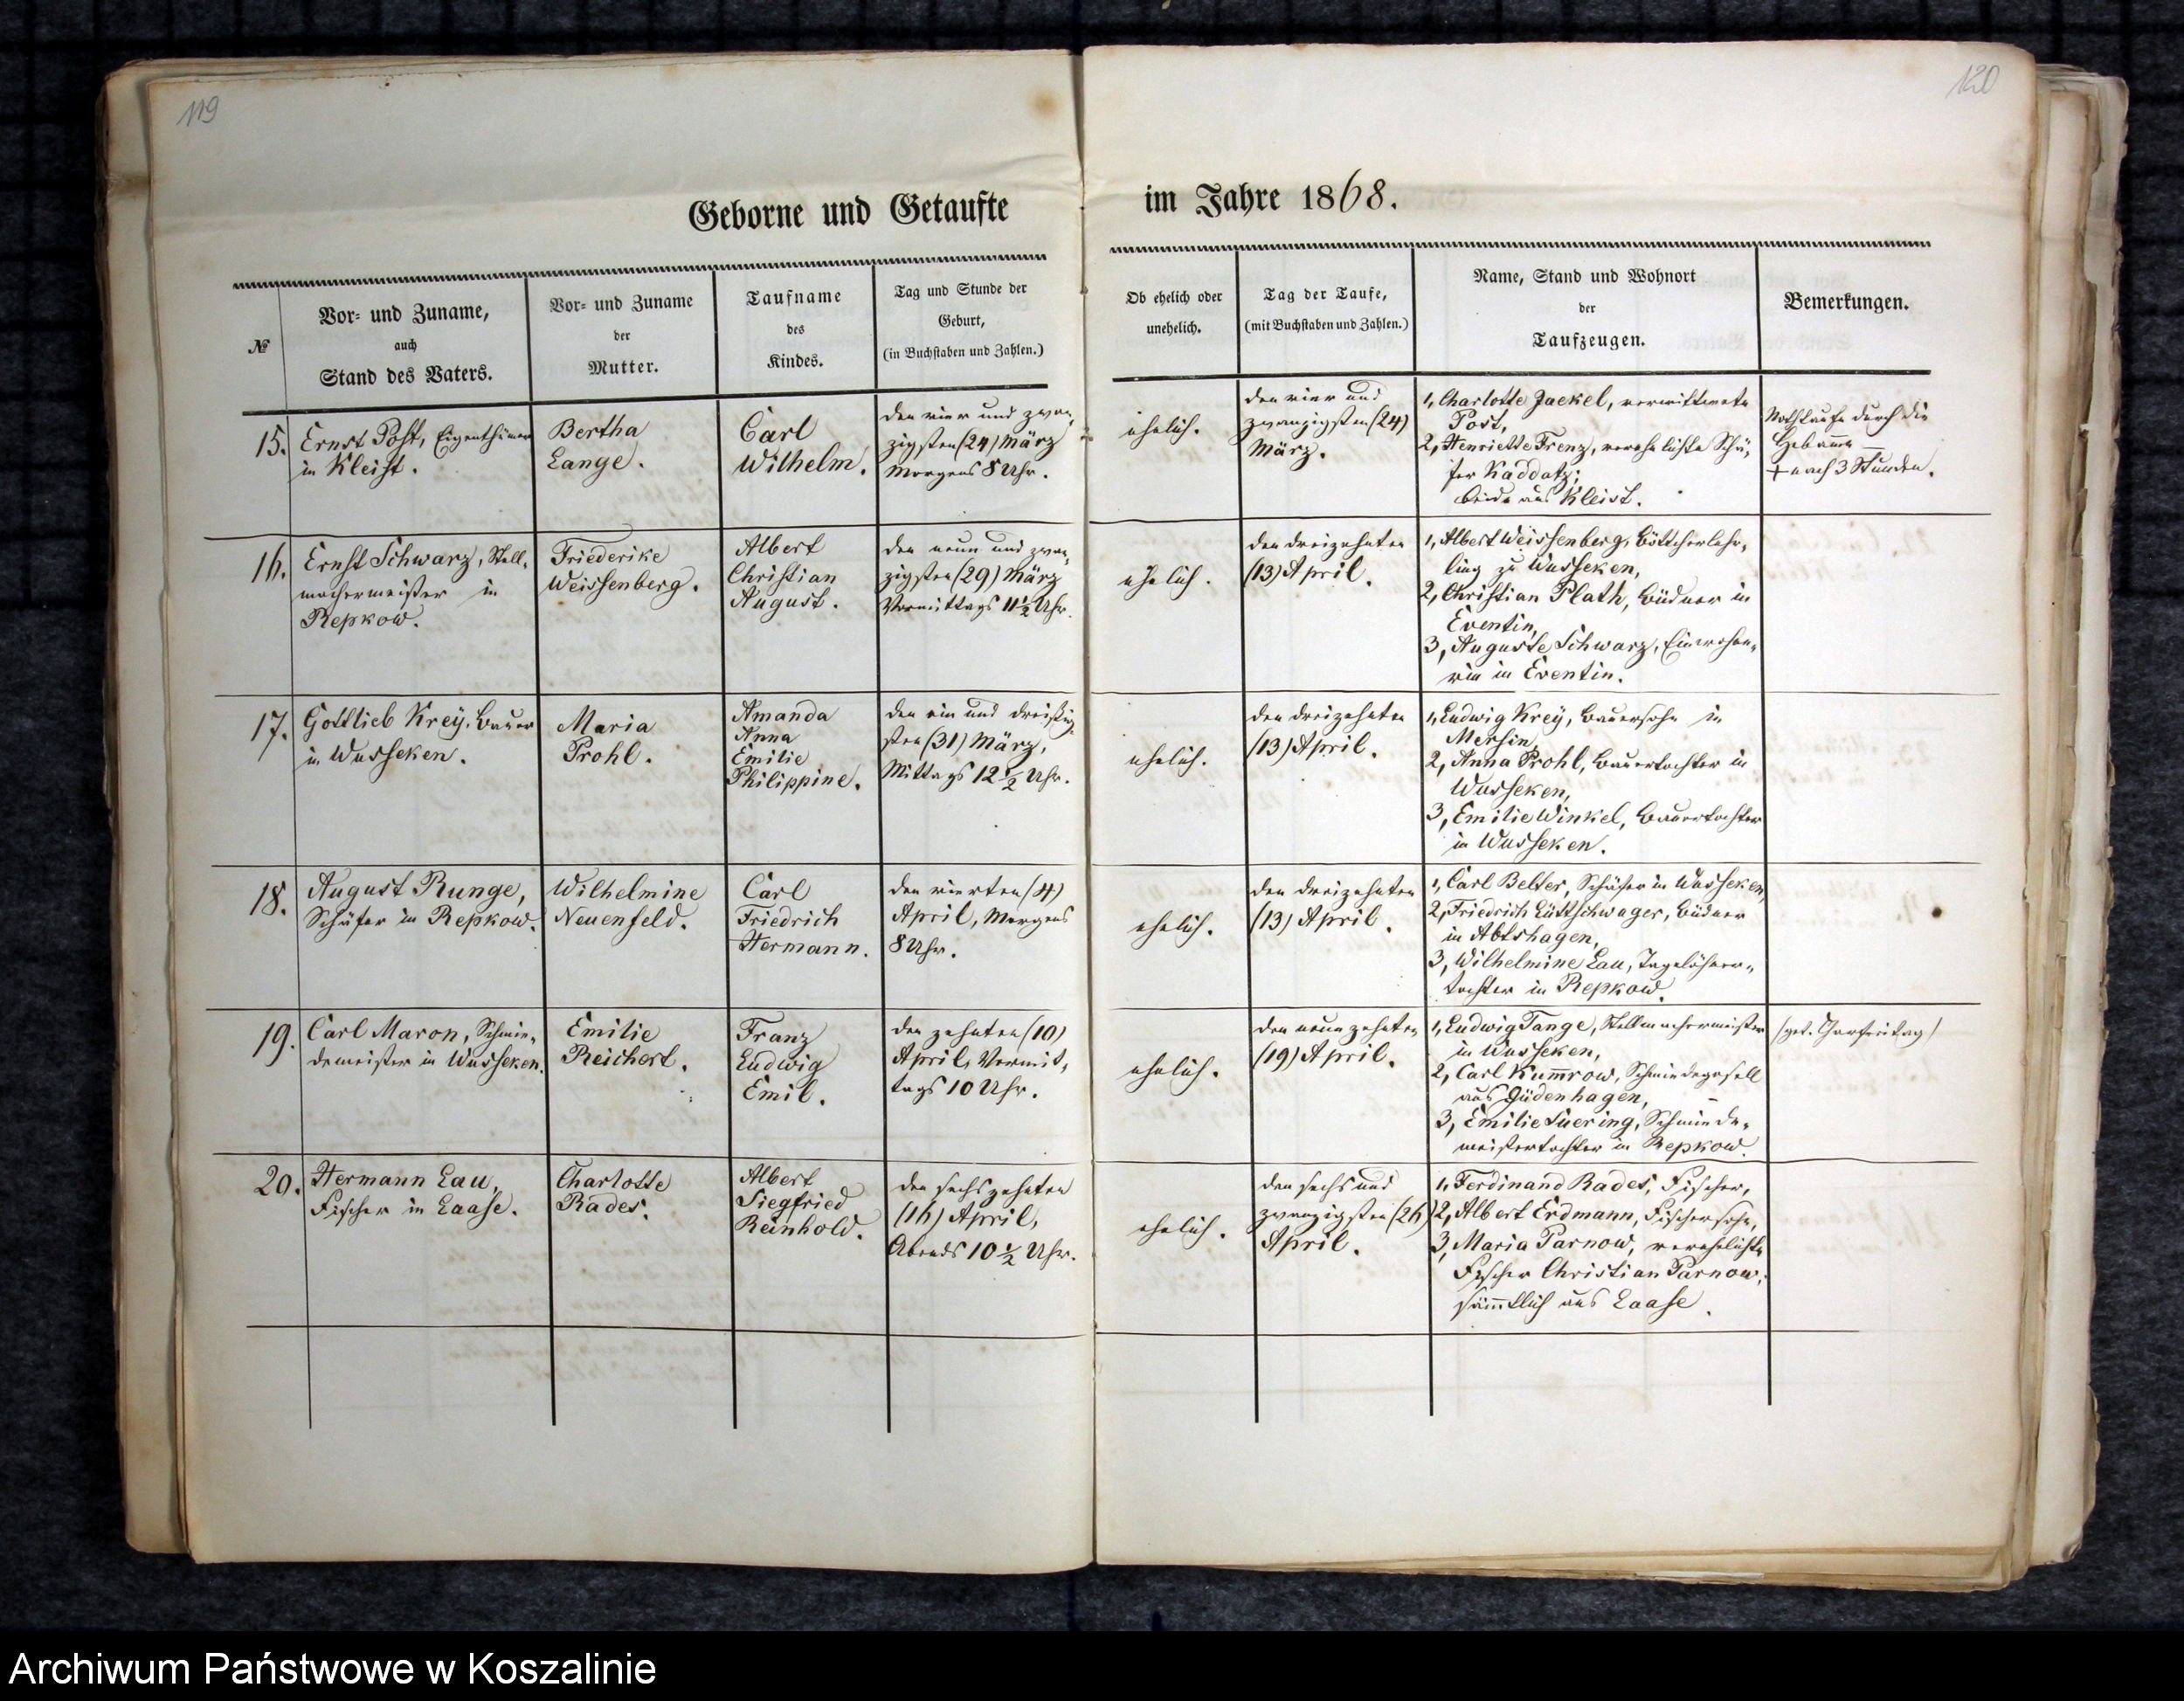 119
120
Geborne und Getaufte im Jahre 1868.
№
Vor- und Zuname,
auch
Stand des Vaters.
Vor- und Zuname
der
Mutter.
Taufname
des
Kindes.
Tag und Stunde der
Geburt,
(in Buchstaben und Zahlen.)
Ob ehelich oder
unehelich.
Tag der Taufe,
(mit Buchstaben und Zahlen.)
Name, Stand und Wohnort
der
Taufzeugen.
Bemerkungen.
15.
Ernst Post, Eigenthümer
in Kleist.
Bertha
Lange.
Carl
Wilhelm.
den vier und zwan-
zigsten (24) März
Morgens 8 Uhr.
ehelich.
den vier und
zwanzigsten (24)
März.
1, Charlotte Jaekel, verwittwete
Post,
2, Henriette Frenz, verehelichte Schä-
fer Kaddatz;
beide aus Kleist.
Nothtaufe durch die
Hebamme
+ nach 3 Stunden.
16.
Ernst Schwarz, Stell-
machermeister in
Repkow.
Friederike
Weissenberg.
Albert
Christian
August.
den neun und zwan-
zigsten (29) März
Vormittags 11½ Uhr.
ehelich.
den dreizehnten
(13) April.
1, Albert Weissenberg, Böttcherlehr-
ling zu Wusseken,
2, Christian Plath, Büdner in
Eventin,
3, Auguste Schwarz, Einwohne-
rin in Eventin.
17.
Gottlieb Krey, Bauer
in Wusseken.
Maria
Prohl.
Amanda
Anna
Emilie
Philippine.
den ein und dreißig-
sten (31) März,
Mittags 12½ Uhr.
ehelich.
den dreizehnten
(13) April.
1, Ludwig Krey, Bauersohn in
Mersin,
2, Anna Prohl, Bauertochter in
Wusseken,
3, Emilie Winkel, Bauertochter
in Wusseken.
18.
August Runge,
Schäfer in Repkow.
Wilhelmine
Neuenfeld.
Carl
Friedrich
Hermann.
den vierten (4)
April, Morgens
8 Uhr.
ehelich.
den dreizehnten
(13) April.
1, Carl Belter, Schäfer in Wusseken,
2, Friedrich Lüttschwager, Büdner
in Abtshagen,
3, Wilhelmine Lau, Tagelöhner-
tochter in Repkow.
19.
Carl Maron, Schmie-
demeister in Wusseken.
Emilie
Reichert.
Franz
Ludwig
Emil.
den zehnten (10)
April, Vormit-
tags 10 Uhr.
ehelich.
den neunzehnten
(19) April.
1, Ludwig Tange, Stellmachermeister
in Wusseken,
2, Carl Kum̅row, Schmiedegesell
aus Güdenhagen,
3, Emilie Suering, Schmiede-
meistertochter in Repkow.
(geb. Charfreitag)
20.
Hermann Lau,
Fischer in Laase.
Charlotte
Rades.
Albert
Siegfried
Reinhold.
den sechszehnten
(16) April,
Abends 10½ Uhr.
ehelich.
den sechs und
zwanzigsten (26)
April.
1, Ferdinand Rades, Fischer,
2, Albert Erdmann, Fischersohn,
3, Maria Parnow, verehelichte
Fischer Christian Parnow;
säm̅tlich aus Laase.
Archiwum Państwowe w Koszalinie